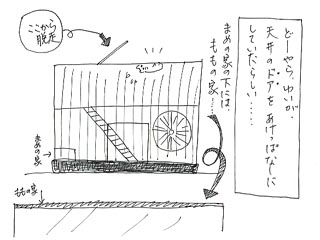 どーやら、ゆいが、
天井のドアをあけっぱなしに
していたらしい……
まめの家の下には、
ももの家…
ここから
脱走
まめの家
ももの家